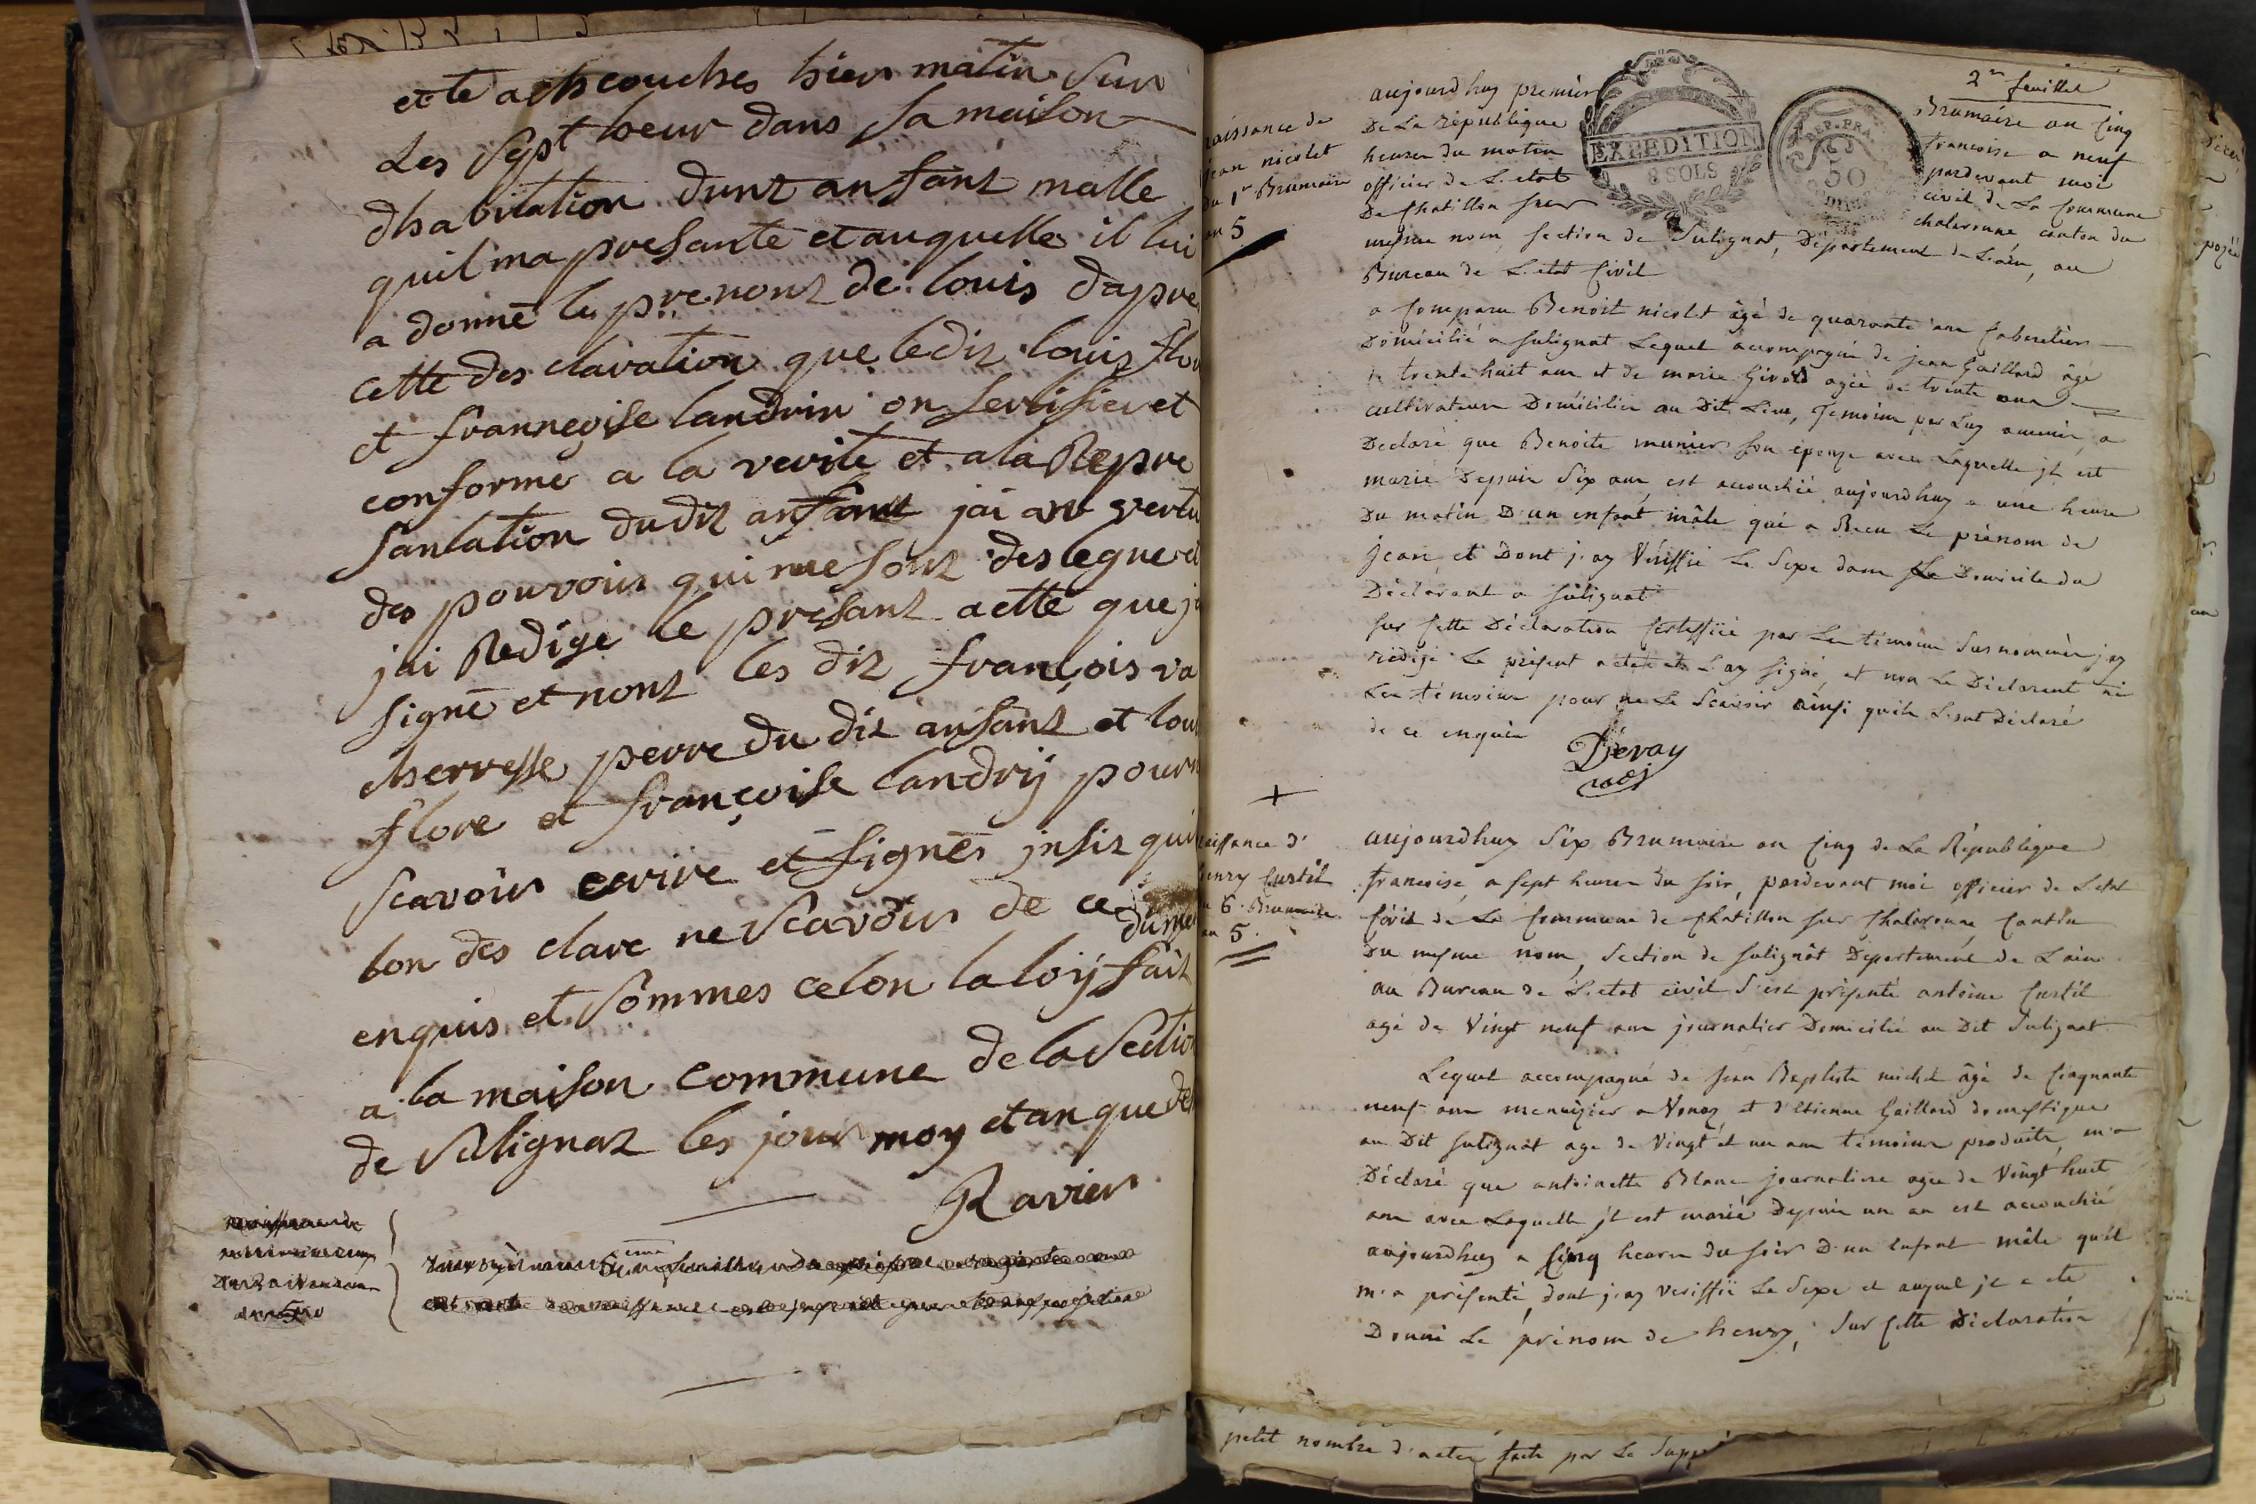 ette achcouches hier matin sur
Les sept heur dans sa maison
dhabitation dunt anfant malle
quil ma presante et auquelle il lui
a donné les prenont de louis dapre
cette des claration que ledit louis flor
et franneçoise landrin on sertifier et
conforme a la verite et a la Repre
santation dudit anfant jai an vertu
des pouvoir qui me sont des legue et
jai Redige le presant actte que j
signé et nont les dit françois va
cherresse perre du dit anfant et lou
flore et françoise landrij pour
scavoir ecrire et signés jnsit quil
lon des clare ne scavoir de ce
dumen
enquis et sommes celon la loij fait
a la maison commune de la section
de sulignat les jour moy et an que de
Ravier
2e feuillet
EXPEDITION
8 SOLS
REP. FRA
50
naissance de
jean nicolet
du 1er Brumaire
an 5
aujourdhuy premier Brumaire an cinq
De La république francoise a neuf
heures du matin pardevant moi
officier de L'etat civil de La Commune
De Chatillon sur chalaronne canton du
mesme nom, section de Sulignat, Département de L'ain, au
Bureau de L'etat Civil
a Comparu Benoit nicolet âgé de quarante ans Cabaretier
Domicilié a sulignat Lequel accompagné de jean Gaillard âgé
de trente huit ans et de marie Girard agée de trente ans
cultivateurs Domiciliés au Dit Lieu, Temoins par Luy amenés, a
Declaré que Benoite munier son épouze avec Laquelle jl est
marié Depuis Six ans, est accouchée aujourdhuy a une heure
Du matin D'un enfant mâle qui a Recu Le prénom de
jean, et Dont j'ay Vériffié Le Sexe dans Le Domicile du
Déclarant a sulignat
sur cette Déclaration certiffiée par Les témoins Sus nommés j'ay
rédigé Le présent acte et L'ay signé, et non Le Déclarant ni
Les témoins pour ne Le Scavoir ainsi qu'ils L'ont Déclaré
de ce enquis
Devay
+
naissance d'
henry Curtil
du 6 Brumaire
an 5.
aujourdhuy Six Brumaire an cinq de La République
francoise, a sept heures du soir, pardevant moi officier de L'etat
Civil de La Commune de Châtillon sur Chalaronne Canton
Du mesme nom, Section de sulignat Département de L'ain
au Bureau de L'etat civil S'est présenté antoine Curtil
agé de Vingt neuf ans journalier Domicilié au Dit Sulignat
Lequel accompagné de jean Baptiste michel âgé de cinquante
neuf ans menuizier a Vonaz, et d'Etienne Gaillard domestique
au Dit sulignat age de Vingt et un ans témoins produits, m'a
Déclaré que antoinette Blanc journaliere agée de Vingt huit
ans avec Laquelle jl est marié Depuis un an est accouchée
aujourdhuy a Cinq heures du soir D'un Enfant mâle qu'il
m'a présenté, dont j'ay veriffié Le Sexe et auquel jl a été
Donné Le prénom de henry, Sur cette Déclaration
petit nombre d'actes faits par Le Supp